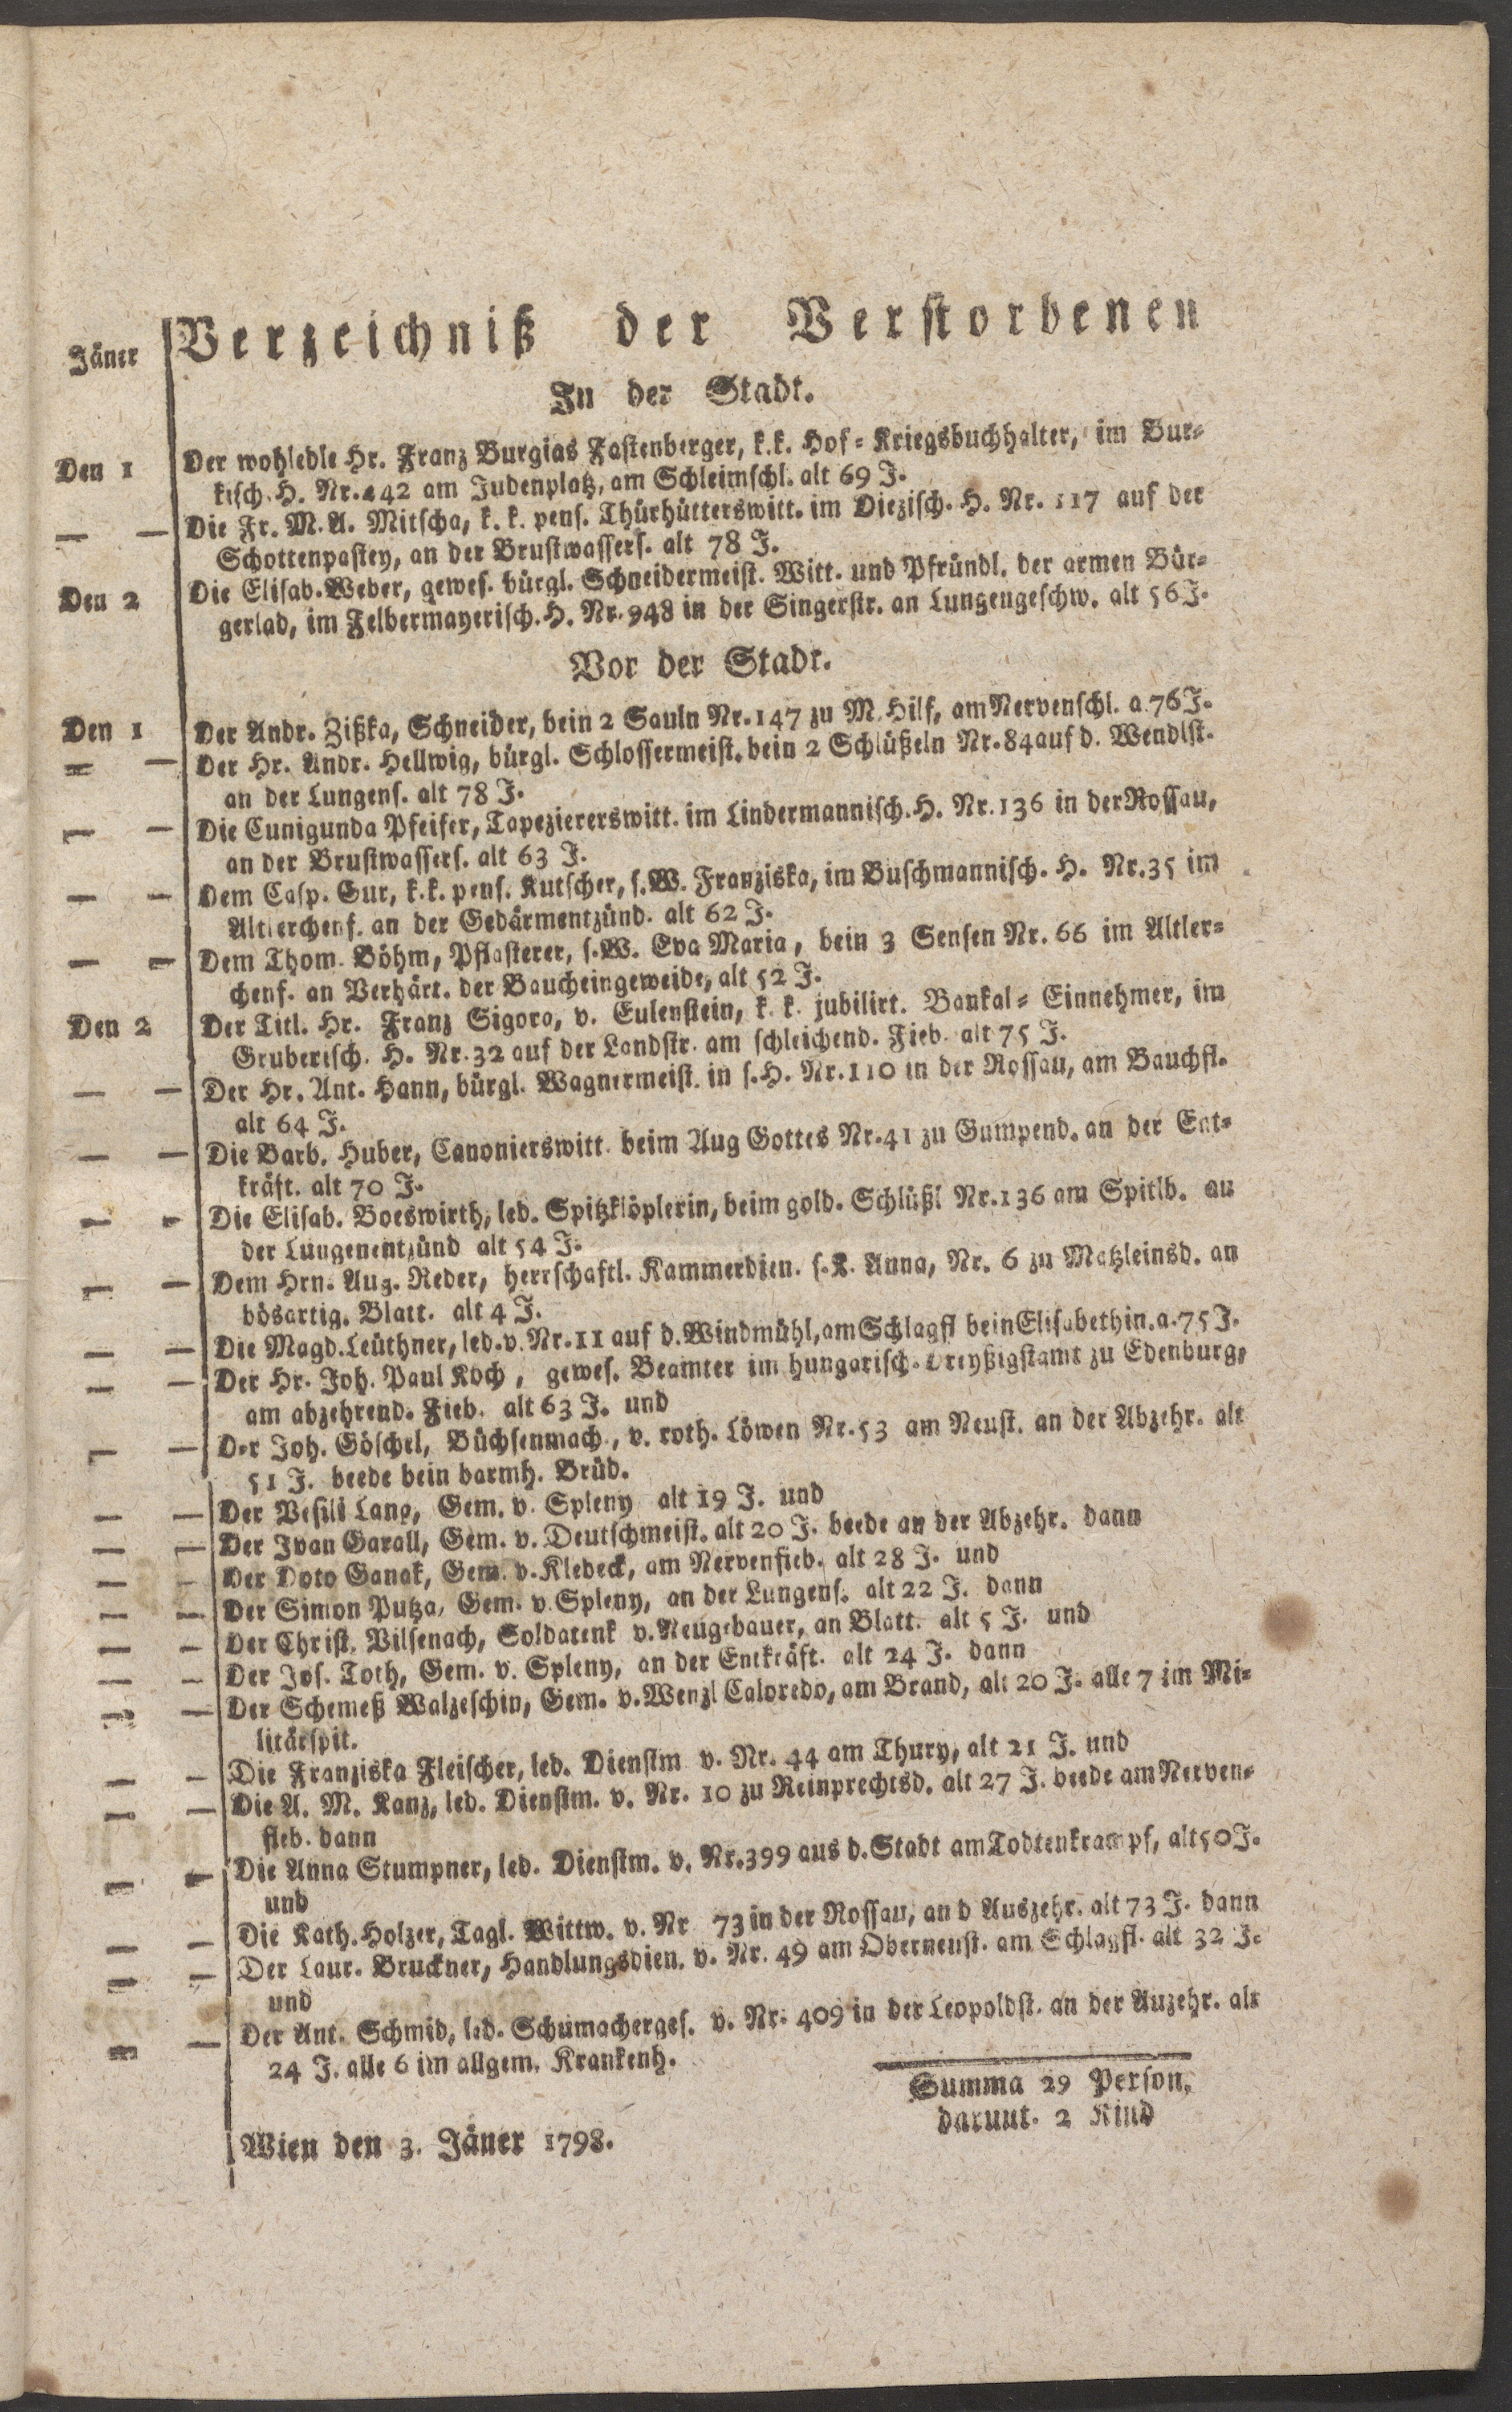 Jäner
Verzeichniß der Verstorbenen
In der Stadt.
Den 1 Der wohledle Hr. Franz Burgias Fastenberger, k.k. Hof-Kriegsbuchhalter, im Bur-
kisch. H. Nr. 442 am Judenplatz, am Schleimschl. alt 69 J.
— — Die Fr. M. A. Mitscha, k. k. pens. Thürhütterswitt. im Diezisch. H. Nr. 117 auf der
Schottenpastey, an der Brustwassers. alt 78 J.
Den 2 Die Elisab. Weber, gewes. bürgl. Schneidermeist. Witt. und Pfründl. der armen Bür-
gerlad, im Felbermayerisch. H. Nr. 948 in der Singerstr. an Lungengeschw. alt 56 J.
Vor der Stadt.
Den 1 Der Andr. Zißka, Schneider, bein 2 Sauln Nr. 147 zu M. Hilf, am Nervenschl. a. 76 J.
— — Der Hr. Andr. Hellwig, bürgl. Schlossermeist. bein 2 Schlüßeln Nr. 84 auf d. Wendlst.
an der Lungens. alt 78 J.
— — Die Cunigunda Pfeifer, Tapeziererswitt. im Lindermannisch. H. Nr. 136 in der Rossau,
an der Brustwassers. alt 63 J.
— — Dem Casp. Sur, k.k. pens. Kutscher, s. W. Franziska, im Buschmannisch. H. Nr. 35 im
Altlerchenf. an der Gedärmentzünd. alt 62 J.
— — Dem Thom. Böhm, Pflasterer, s. W. Eva Maria, bein 3 Sensen Nr. 66 im Altler-
chenf. an Verhärt. der Baucheingeweide, alt 52 J.
Den 2 Der Titl. Hr. Franz Sigora, v. Eulenstein, k. k. jubilirt. Bankal-Einnehmer, im
Gruberisch. H. Nr. 32 auf der Landstr. am schleichend. Fieb. alt 75 J.
— — Der Hr. Ant. Hann, bürgl. Wagnermeist. in s. H. Nr. 110 in der Rossau, am Bauchfl.
alt 64 J.
— — Die Barb. Huber, Canonierswitt. beim Aug Gottes Nr. 41 zu Gumpend. an der Ent-
kräft. alt 70 J.
— — Die Elisab. Boeswirth, led. Spitzklöplerin, beim gold. Schlüßl Nr. 136 am Spitlb. an
der Lungenentzünd alt 54 J.
— — Dem Hrn. Aug. Reder, herrschaftl. Kammerdien. s. K. Anna, Nr. 6 zu Matzleinsd. an
bösartig. Blatt. alt 4 J.
— — Die Magd. Leüthner, led. v. Nr. 11 auf d. Windmühl, am Schlagfl bein Elisabethin. a. 75 J.
— — Der Hr. Joh. Paul Koch, gewes. Beamter im hungarisch. Dreyßigstamt zu Edenburg,
am abzehrend. Fieb. alt 63 J. und
— — Der Joh. Göschel, Büchsenmach., v. roth. Löwen Nr. 53 am Neust. an der Abzehr. alt
51 J. beede bein barmh. Brüd.
— — Der Vesili Lang, Gem. v. Spleny alt 19 J. und
— — Der Ivan Garall, Gem. v. Deutschmeist. alt 20 J. beede an der Abzehr. dann
— — Der Doto Ganak, Gem. v. Klebeck, am Nervenfieb. alt 28 J. und
— — Der Simon Putza, Gem. v. Spleny, an der Lungens. alt 22 J. dann
— — Der Christ. Vilsenach, Soldatenk v. Neugebauer, an Blatt. alt 5 J. und
— — Der Jos. Toth, Gem. v. Spleny, an der Entkräft. alt 24 J. dann
— — Der Schemeß Walzeschin, Gem. v. Wenzl Caloredo, am Brand, alt 20 J. alle 7 im Mi-
litärspit.
— — Die Franziska Fleischer, led. Dienstm v. Nr. 44 am Thury, alt 21 J. und
— — Die A. M. Kanz, led. Dienstm. v. Nr. 10 zu Reinprechtsd. alt 27 J. beede am Nerven-
fieb. dann
— — Die Anna Stumpner, led. Dienstm. v. Nr. 399 aus d. Stadt am Todtenkrampf, alt 50 J.
und
— — Die Kath. Holzer, Tagl. Wittw. v. Nr 73 in der Rossau, an d Auszehr. alt 73 J. dann
— — Der Laur. Bruckner, Handlungsdien. v. Nr. 49 am Oberneust. am Schlagfl. alt 32 J.
und
— — Der Ant. Schmid, led. Schumacherges. v. Nr. 409 in der Leopoldst. an der Auzehr. alt
24 J. alle 6 im allgem. Krankenh.
Summa 29 Person,
darunt. 2 Kind
Wien den 3. Jäner 1798.